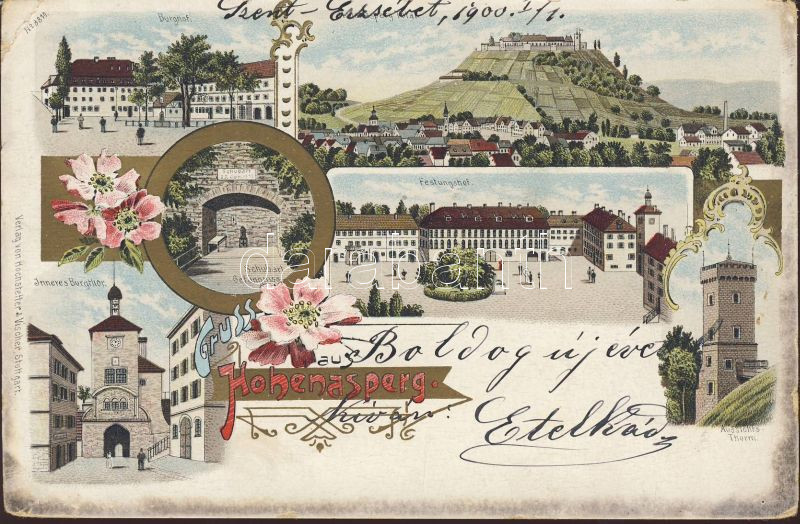 No. 6811.
Szent-Erzsébet, 1900. I/1.
Burghof.
Schubart
Festungshof.
Schubart
Gefängniss
Inneres Burgthor.
Gruss
aus
Hohenasperg.
Boldog új éve
kíván:
Etelkád
Aussichts
Thurm.
Verlag von Hochstetter & Vischer, Stuttgart.
darabanth